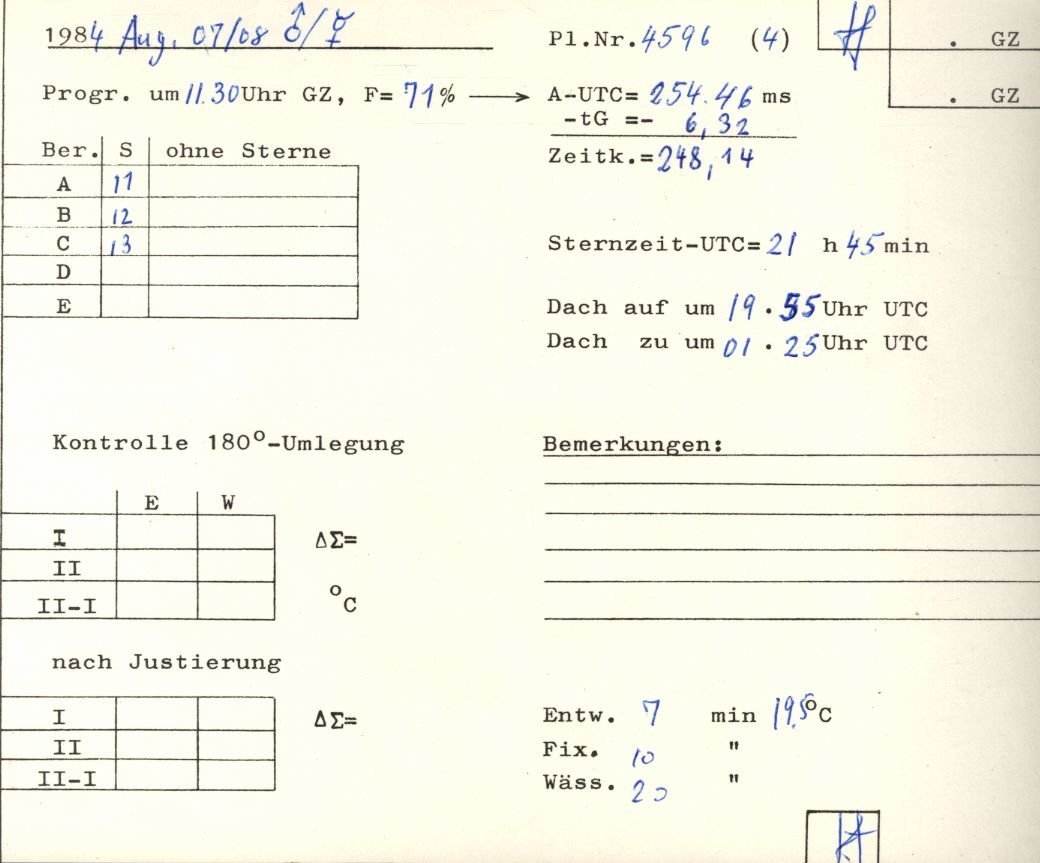 1984 Aug. 07/08 ♂/☿ Pl.Nr. 4596 (4) . GZ
Progr. um 11.30 Uhr GZ, F= 71% → A-UTC= 254.46 ms . GZ
-tG =- 6,32
Ber. S ohne Sterne Zeitk.=248,14
A 11
B 12
C 13 Sternzeit-UTC= 21 h 45 min
D
E Dach auf um 19.55 Uhr UTC
Dach zu um 01.25 Uhr UTC
Kontrolle 180°-Umlegung Bemerkungen:
E W
I ΔΣ=
II
II-I °C
nach Justierung
I ΔΣ= Entw. 7 min 19,5°C
II Fix. 10 "
II-I Wäss. 20 "